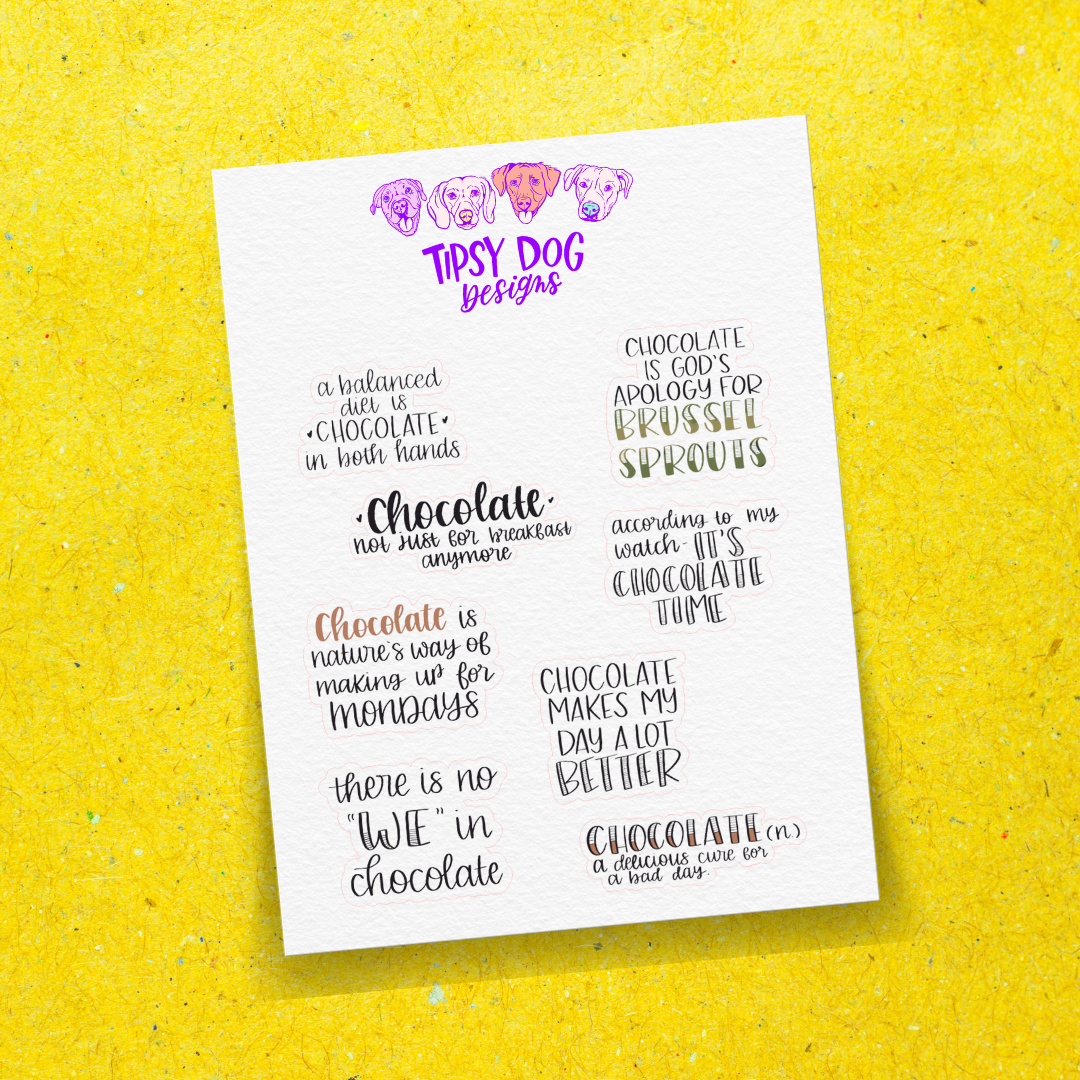 TIPSY DOG
Designs
a balanced
diet is
CHOCOLATE
in both hands
Chocolate
not just for breakfast
anymore
Chocolate is
nature's way of
making up for
MONDAYS
there is no
"WE" in
chocolate
CHOCOLATE
IS GOD'S
APOLOGY FOR
BRUSSEL
SPROUTS
according to my
watch - IT'S
CHOCOLATE
TIME
CHOCOLATE
MAKES MY
DAY A LOT
BETTER
CHOCOLATE (n.)
a delicious cure for
a bad day.